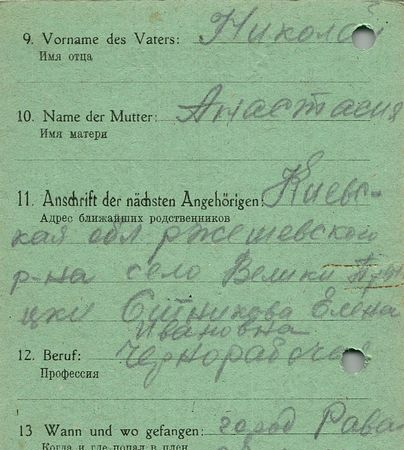 9. Vorname des Vaters: Николай
Имя отца
10. Name der Mutter: Анастасия
Имя матери
11. Anschrift der nächsten Angehörigen: Киевс-
Адрес ближайших родственников
кая обл ржешевского
р-на село Велики Пры
цки Ситникова Елена
Ивановна
12. Beruf: Чернорабочая
Профессия
13 Wann und wo gefangen: город Рава
Когда и где попал в плен